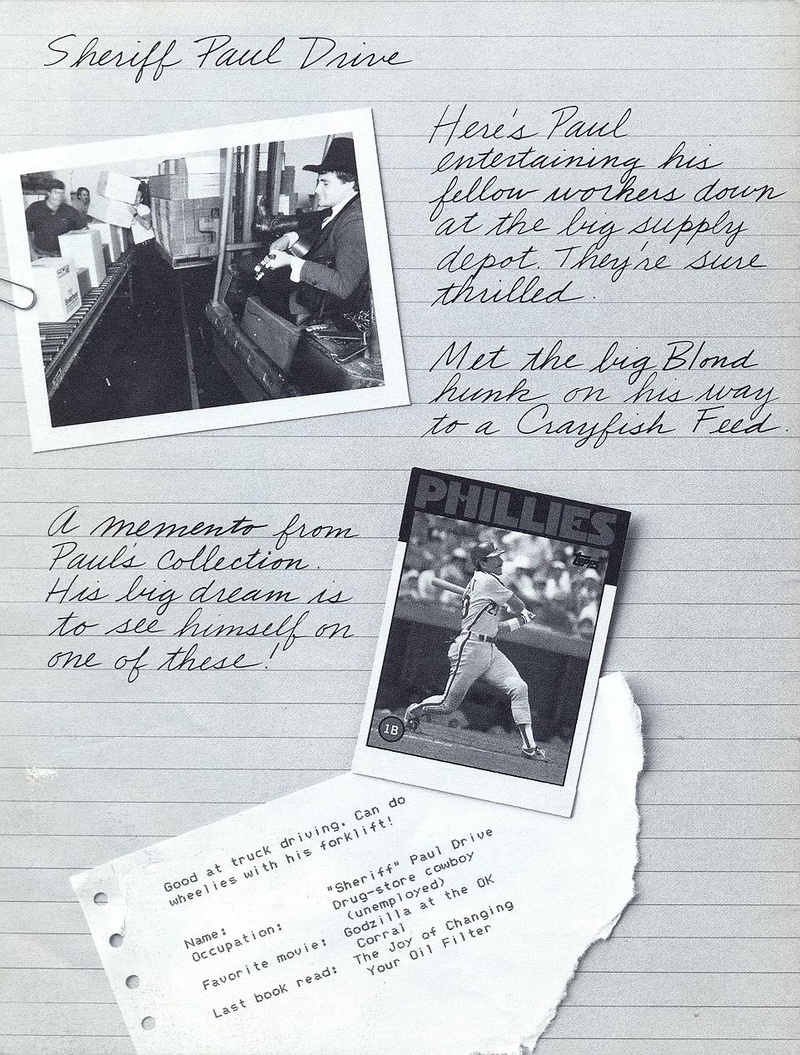 Sheriff Paul Drive
Here's Paul
entertaining his
fellow workers down
at the big supply
depot. They're sure
thrilled.
Met the big Blond
hunk on his way
to a Crayfish Feed.
A memento from
Paul's collection.
His big dream is
to see himself on
one of these!
PHILLIES
Topps
1B
Good at truck driving. Can do
wheelies with his forklift!
Name: "Sheriff" Paul Drive
Occupation: Drug-store cowboy
(unemployed)
Favorite movie: Godzilla at the OK
Corral
Last book read: The Joy of Changing
Your Oil Filter